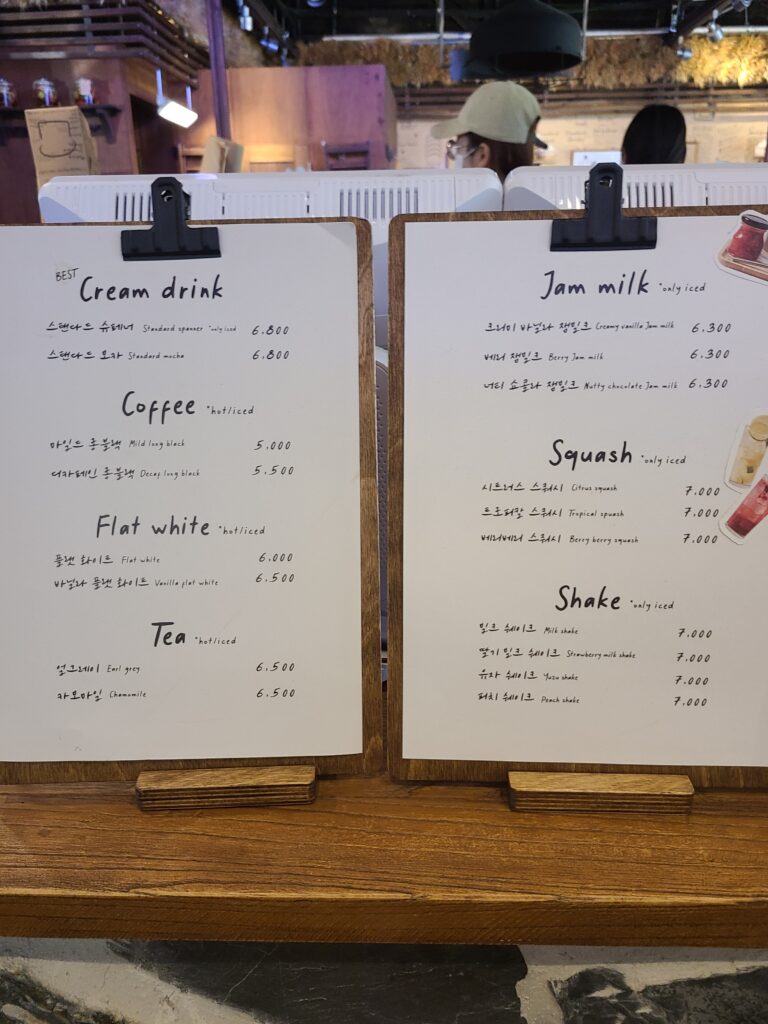 BEST
Cream drink
스탠다드 슈페너 Standard spanner *only iced 6,800
스탠다드 모카 Standard mocha 6,800
Coffee *hot/iced
마일드 롱블랙 Mild long black 5,000
디카페인 롱블랙 Decaf long black 5,500
Flat white *hot/iced
플랫 화이트 Flat white 6,000
바닐라 플랫 화이트 Vanilla flat white 6,500
Tea *hot/iced
얼그레이 Earl grey 6,500
카모마일 Chamomile 6,500
Jam milk *only iced
크리미 바닐라 잼밀크 Creamy vanilla Jam milk 6,300
베리 잼밀크 Berry Jam milk 6,300
너티 쇼콜라 잼밀크 Nutty chocolate Jam milk 6,300
Squash *only iced
시트러스 스쿼시 Citrus squash 7,000
트로피칼 스쿼시 Tropical squash 7,000
베리베리 스쿼시 Berry berry squash 7,000
Shake *only iced
밀크 쉐이크 Milk shake 7,000
딸기 밀크 쉐이크 Strawberry milk shake 7,000
유자 쉐이크 Yuzu shake 7,000
피치 쉐이크 Peach shake 7,000